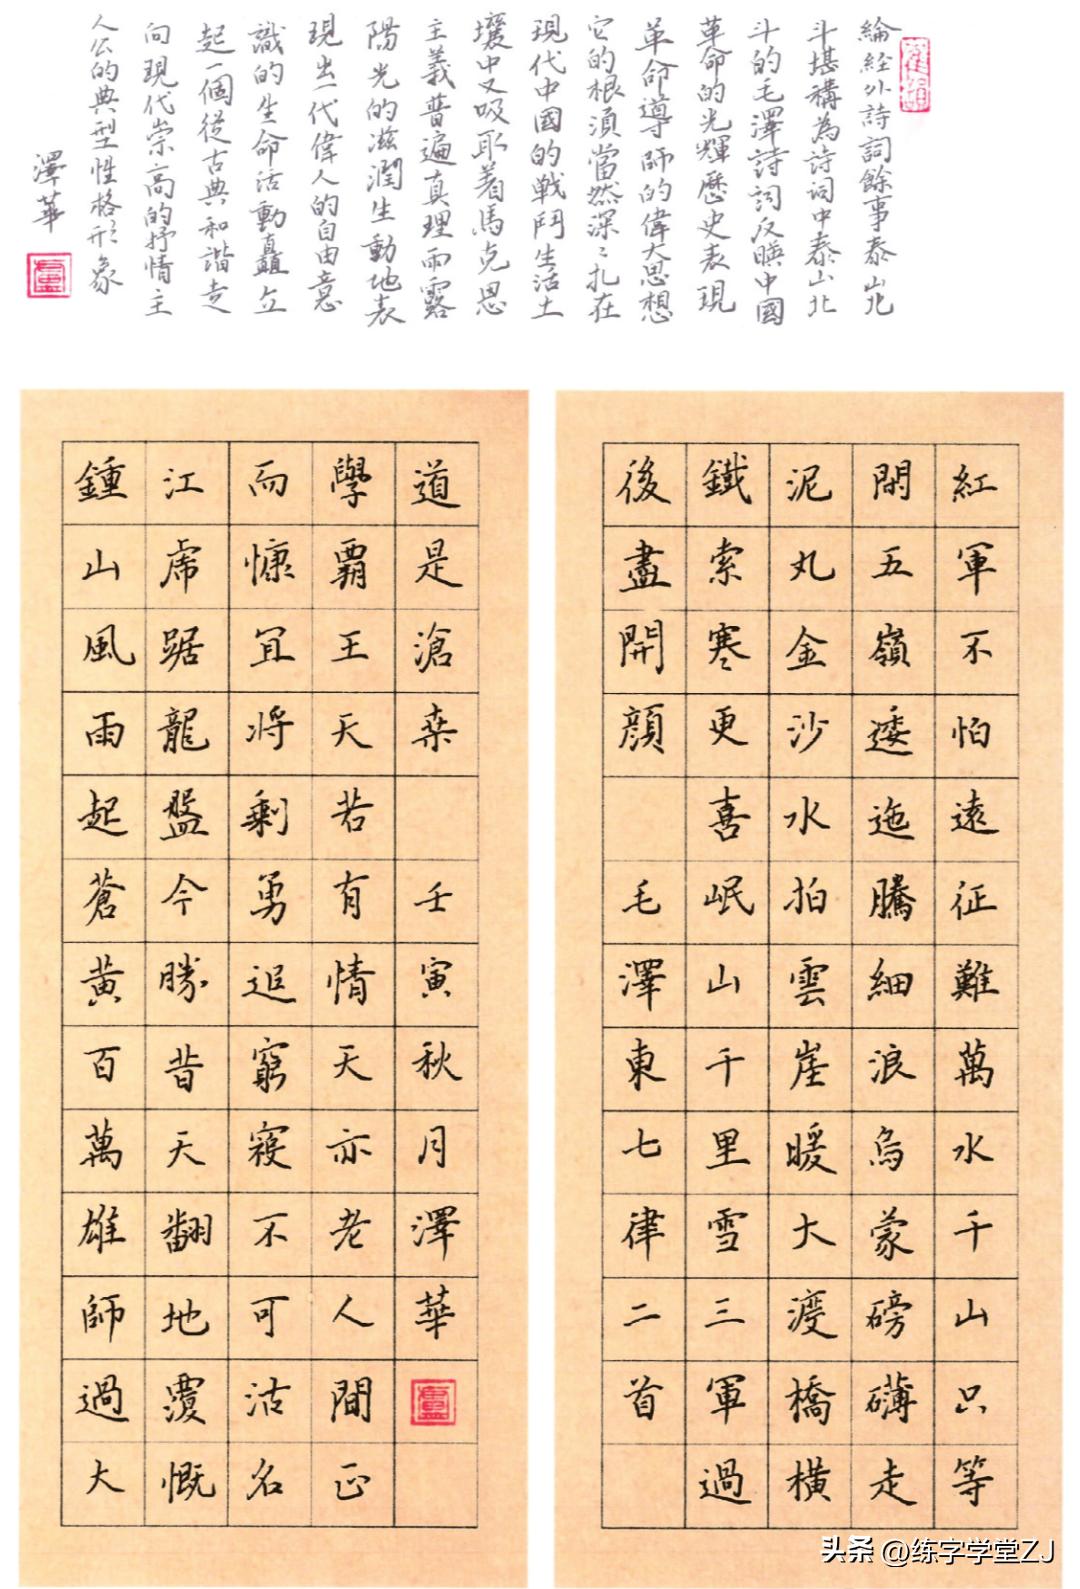 綸經外詩詞餘事泰山北
斗堪稱為詩詞中泰山北
斗的毛澤詩詞反映中國
革命的光輝歷史表現
革命導師的偉大思想
它的根須當然深〻扎在
現代中國的戰鬥生活土
壤中又吸取着馬克思
主義普遍真理雨露
陽光的滋潤生動地表
現出一代偉人的自由意
識的生命活動矗立
起一個從古典和諧走
向現代崇高的抒情主
人公的典型性格形象
澤華
盧
紅軍不怕遠征難萬水千山只等
閑五嶺逶迤騰細浪烏蒙磅礴走
泥丸金沙水拍雲崖暖大渡橋橫
鐵索寒更喜岷山千里雪三軍過
後盡開顏 毛澤東七律二首
鍾山風雨起蒼黃百萬雄師過大
江虎踞龍盤今勝昔天翻地覆慨
而慷宜將剩勇追窮寇不可沽名
學霸王天若有情天亦老人間正
道是滄桑 壬寅秋月澤華
盧
头条 @练字学堂ZJ